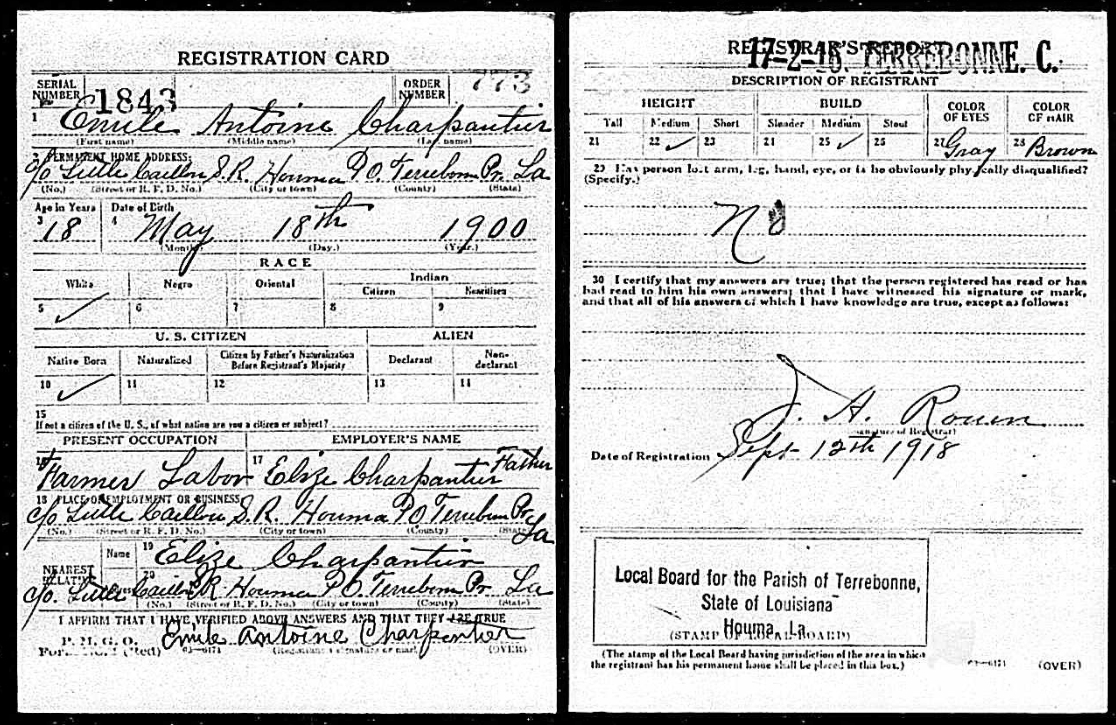 REGISTRATION CARD
SERIAL NUMBER 1843 ORDER NUMBER 773
1 Emile Antoine Charpantier
(First name) (Middle name) (Last name)
2 PERMANENT HOME ADDRESS:
c/o Little Caillou S.R. Houma P.O. Terrebonn Pr. La
(No.) (Street or R. F. D. No.) (City or town) (County) (State)
Age in Years Date of Birth
3 18 4 May 18th 1900
(Month.) (Day.) (Year.)
RACE
White Negro Oriental Indian
Citizen Noncitizen
5 ✓ 6 7 8 9
U. S. CITIZEN ALIEN
Native Born Naturalized Citizen by Father's Naturalization Before Registrant's Majority Declarant Non-declarant
10 ✓ 11 12 13 14
15
If not a citizen of the U. S., of what nation are you a citizen or subject?
PRESENT OCCUPATION EMPLOYER'S NAME
16 Farmer Labor 17 Elize Charpantier Father
18 PLACE OF EMPLOYMENT OR BUSINESS:
c/o Little Caillou S.R. Houma P.O. Terrebonn Pr. La
(No.) (Street or R. F. D. No.) (City or town) (County) (State)
NEAREST RELATIVE Name 19 Elize Charpantier
20 c/o Little Caillou S.R. Houma P.O. Terrebonn Pr. La
(No.) (Street or R. F. D. No.) (City or town) (County) (State)
I AFFIRM THAT I HAVE VERIFIED ABOVE ANSWERS AND THAT THEY ARE TRUE
P. M. G. O.
Form No. 1 (Red) 03-6171 Emile Antoine Charpentier
(Registrant's signature or mark) (OVER)
REGISTRAR'S REPORT
17-2-18. TERREBONNE. C.
DESCRIPTION OF REGISTRANT
HEIGHT BUILD COLOR OF EYES COLOR OF HAIR
Tall Medium Short Slender Medium Stout
21 22 ✓ 23 24 25 ✓ 26 27 Gray 28 Brown
29 Has person lost arm, leg, hand, eye, or is he obviously physically disqualified?
(Specify.)
No
30 I certify that my answers are true; that the person registered has read or has
had read to him his own answers; that I have witnessed his signature or mark,
and that all of his answers of which I have knowledge are true, except as follows:
J. A. Rouen
(Signature of Registrar)
Date of Registration Sept 12th 1918
Local Board for the Parish of Terrebonne,
State of Louisiana
Houma, La.
(STAMP OF LOCAL BOARD)
(The stamp of the Local Board having jurisdiction of the area in which
the registrant has his permanent home shall be placed in this box.)
03-6171 (OVER)